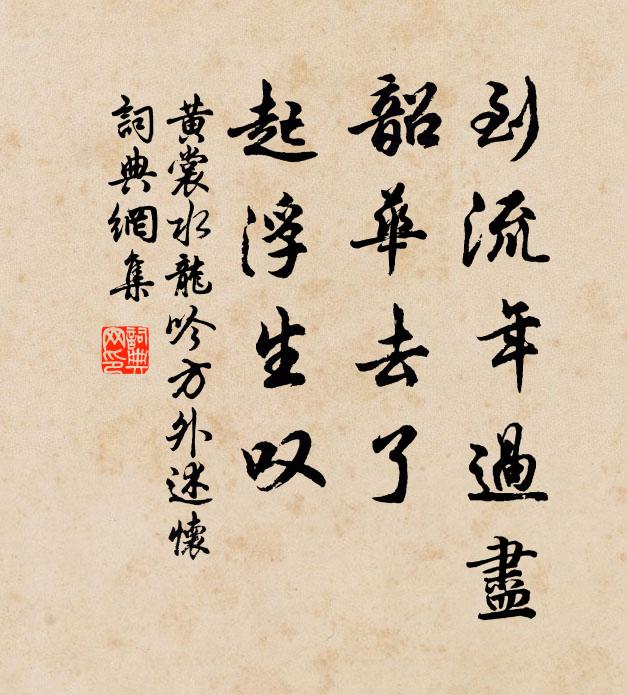 到流年過盡
韶華去了
起浮生叹
黃裳水龍吟方外述懷
詞典網集
詞典网印